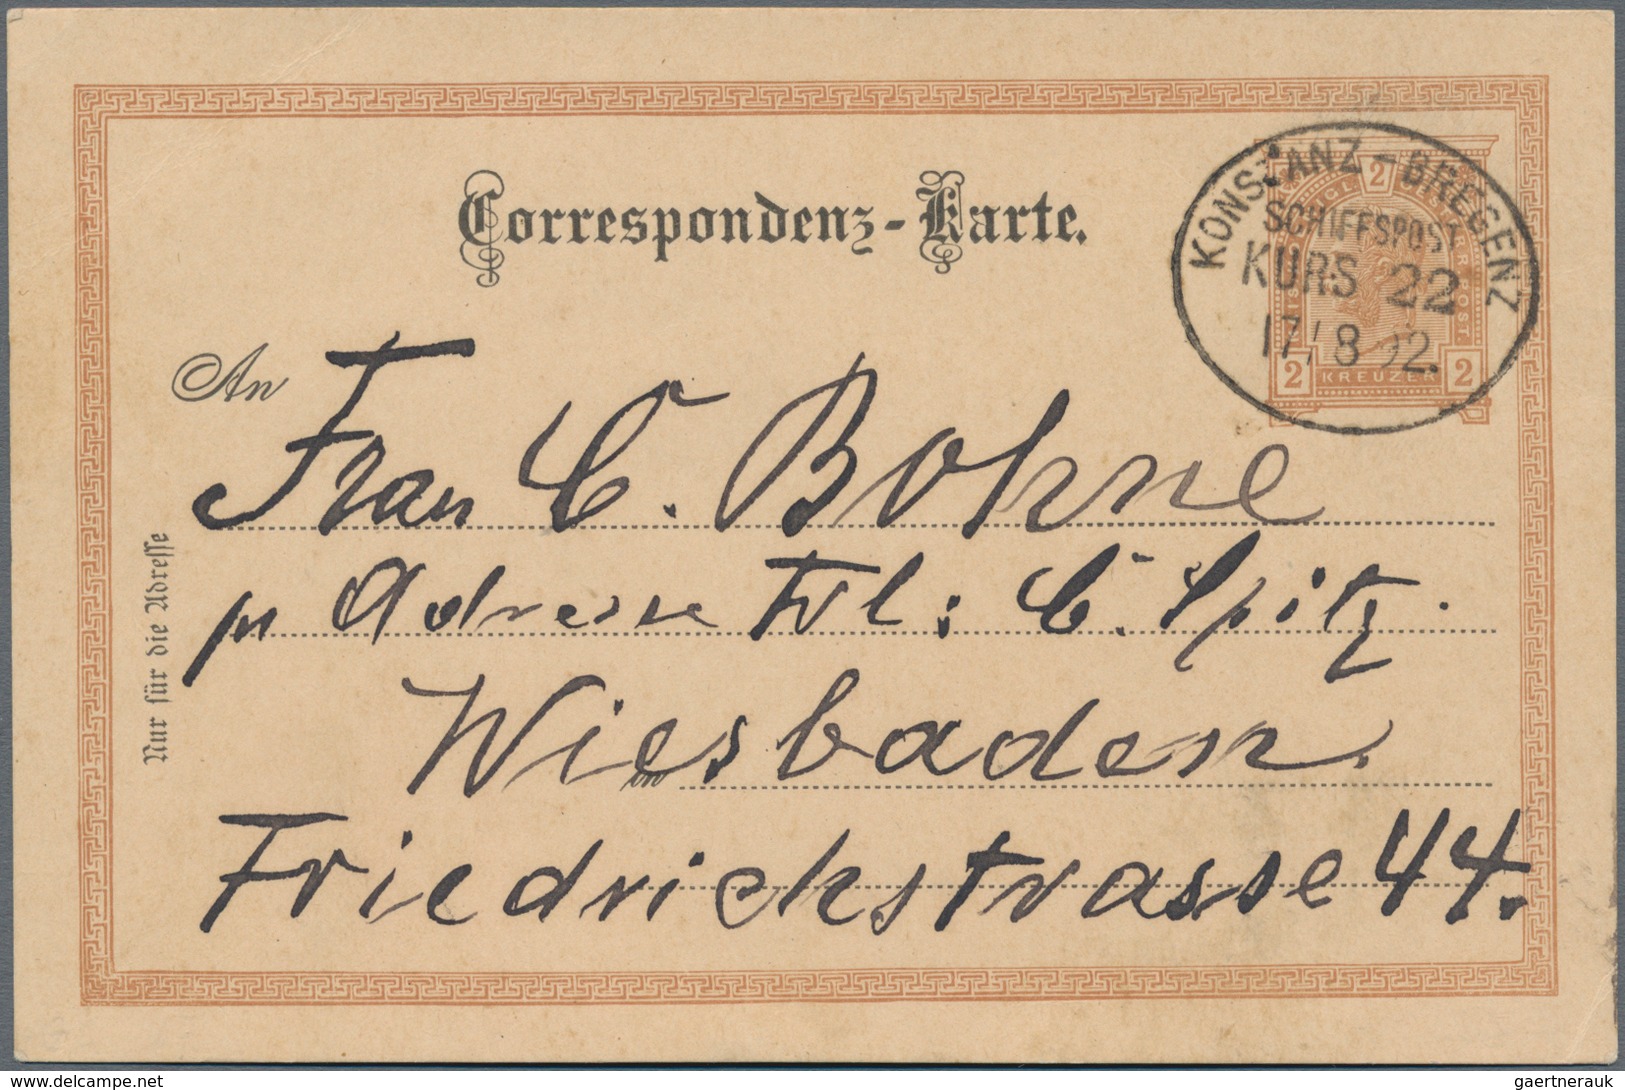 Correspondenz-Karte.
KONSTANZ - BREGENZ
SCHIFFSPOST
KURS 22
17/8 92.
2
2 KREUZER 2
An
Frau C. Bohne
pr Adresse Frl: C. Spitz.
Wiesbaden.
in
Friedrichstrasse 44.
Nur für die Adresse
www.delcampe.net
gaertnerauk